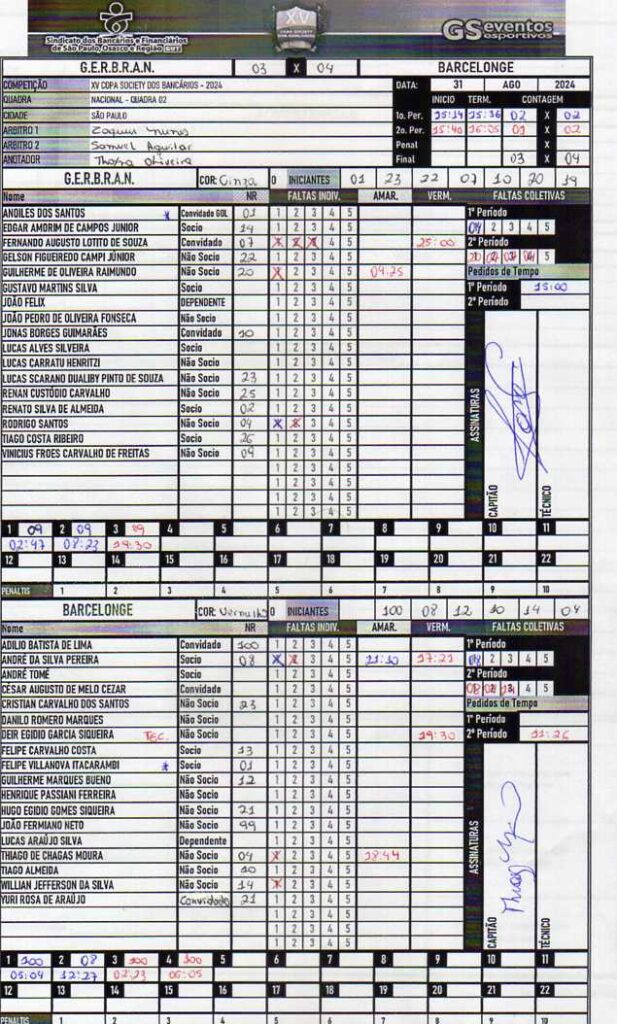 XV
Sindicato dos Bancários e Financiários
de São Paulo, Osasco e Região CUT
GS eventos
esportivos
G.E.R.B.R.A.N. 03 X 04 BARCELONGE
COMPETIÇÃO XV COPA SOCIETY DOS BANCÁRIOS - 2024 DATA: 31 AGO 2024
QUADRA NACIONAL - QUADRA 02 INICIO TERM. CONTAGEM
CIDADE SÃO PAULO 1o. Per. 15:14 15:36 02 X 02
ARBITRO 1 2o. Per. 15:40 16:05 01 X 02
ARBITRO 2 Samuel Aguilar Penal X
ANOTADOR Thayra Oliveira Final 03 X 04
G.E.R.B.R.A.N. COR: Cinza 0 INICIANTES 01 23 22 07 10 20 19
Nome NR FALTAS INDIV. AMAR. VERM. FALTAS COLETIVAS
ANOILES DOS SANTOS * Convidado GOL 01 1 2 3 4 5 1º Período
EDGAR AMORIM DE CAMPOS JUNIOR Socio 14 1 2 3 4 5 2 3 4 5
FERNANDO AUGUSTO LOTITO DE SOUZA Convidado 07 X X X 4 5 25:00 2º Período
GELSON FIGUEIREDO CAMPI JÚNIOR Não Socio 22 1 2 3 4 5 5
GUILHERME DE OLIVEIRA RAIMUNDO Não Socio 20 X 2 3 4 5 04:25 Pedidos de Tempo
GUSTAVO MARTINS SILVA Socio 1 2 3 4 5 1º Período 15:00
JOÃO FELIX DEPENDENTE 1 2 3 4 5 2º Período
JOÃO PEDRO DE OLIVEIRA FONSECA Não Socio 1 2 3 4 5
JONAS BORGES GUIMARÃES Convidado 10 1 2 3 4 5
LUCAS ALVES SILVEIRA Socio 1 2 3 4 5
LUCAS CARRATU HENRITZI Não Socio 1 2 3 4 5
LUCAS SCARANO DUALIBY PINTO DE SOUZA Não Socio 23 1 2 3 4 5
RENAN CUSTÓDIO CARVALHO Não Socio 25 1 2 3 4 5
RENATO SILVA DE ALMEIDA Socio 02 1 2 3 4 5
RODRIGO SANTOS Não Socio 04 X X 3 4 5
TIAGO COSTA RIBEIRO Socio 26 1 2 3 4 5
VINICIUS FROES CARVALHO DE FREITAS Não Socio 09 1 2 3 4 5
1 2 3 4 5
1 2 3 4 5
1 2 3 4 5
1 2 3 4 5
ASSINATURAS
CAPITÃO
TÉCNICO
1 09 2 09 3 4 5 6 7 8 9 10 11
02:47 08:23
12 13 14 15 16 17 18 19 20 21 22
PENALTIS 1 2 3 4 5 6 7 8 9 10
BARCELONGE COR: Vermelho 0 INICIANTES 100 08 12 10 14 04
Nome NR FALTAS INDIV. AMAR. VERM. FALTAS COLETIVAS
ADILIO BATISTA DE LIMA Convidado 100 1 2 3 4 5 1º Período
ANDRÉ DA SILVA PEREIRA Socio 08 X X 3 4 5 21:10 17:21 2 3 4 5
ANDRE TOMÉ Socio 1 2 3 4 5 2º Período
CÉSAR AUGUSTO DE MELO CEZAR Convidado 1 2 3 4 5 4 5
CRISTIAN CARVALHO DOS SANTOS Não Socio 23 1 2 3 4 5 Pedidos de Tempo
DANILO ROMERO MARQUES Não Socio 1 2 3 4 5 1º Período
DEIR EGIDIO GARCIA SIQUEIRA TEC. Não Socio 1 2 3 4 5 19:30 2º Período 11:26
FELIPE CARVALHO COSTA Socio 13 1 2 3 4 5
FELIPE VILLANOVA ITACARAMBI * Socio 01 1 2 3 4 5
GUILHERME MARQUES BUENO Não Socio 12 1 2 3 4 5
HENRIQUE PASSIANI FERREIRA Não Socio 1 2 3 4 5
HUGO EGIDIO GOMES SIQUEIRA Não Socio 21 1 2 3 4 5
JOÃO FERMIANO NETO Não Socio 99 1 2 3 4 5
LUCAS ARAÚJO SILVA Dependente 1 2 3 4 5
THIAGO DE CHAGAS MOURA Não Socio 04 X 2 3 4 5 18:44
TIAGO ALMEIDA Não Socio 10 1 2 3 4 5
WILLIAN JEFFERSON DA SILVA Não Socio 14 X 2 3 4 5
YURI ROSA DE ARAÚJO Convidado 21 1 2 3 4 5
1 2 3 4 5
1 2 3 4 5
1 2 3 4 5
ASSINATURAS
CAPITÃO
TÉCNICO
1 100 2 08 3 100 4 100 5 6 7 8 9 10 11
05:04 12:27 02:23 06:05
12 13 14 15 16 17 18 19 20 21 22
PENALTIS 1 2 3 4 5 6 7 8 9 10